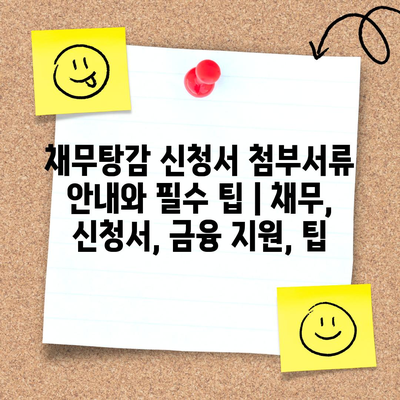 채무탕감 신청서 첨부서류
안내와 필수 팁 | 채무,
신청서, 금융 지원, 팁